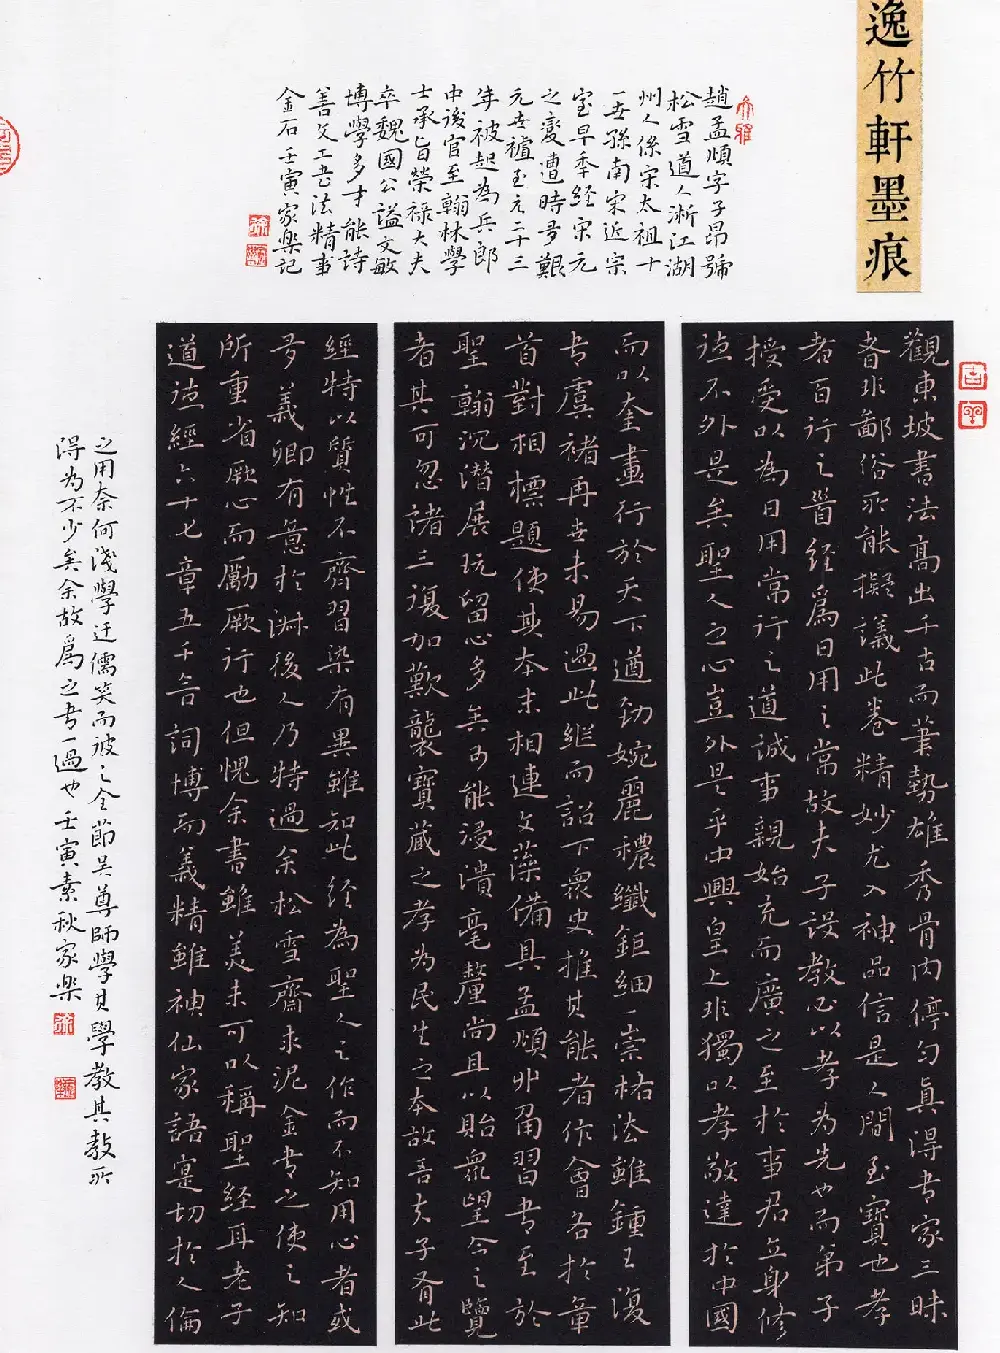 逸竹軒墨痕
趙孟頫字子昂號
松雪道人浙江湖
州人係宋太祖十
一世孫南宋近宗
室早奉經宋元
之變遭時多艱
元世祖至元二十三
年被起為兵郎
中後官至翰林學
士承旨榮祿大夫
卒魏國公謚文敏
博學多才能詩
善文工书法精事
金石壬寅家樂記
觀東坡書法高出千古而筆勢雄秀骨肉停勻真得书家三昧
者非鄙俗所能擬議此卷精妙尤入神品信是人間至寶也孝
者百行之首經爲日用之常故夫子設教必以孝為先也而弟子
授受以為日用常行之道誠事親始充而廣之至於事君立身修
德不外是矣聖人之心豈外是乎中興皇上非獨以孝敬達於中國
而以奎畫行於天下遒勁婉麗穠纖鉅細一崇祐法雖鍾王復
书虞褚再世未易過此继而詔下眾史推其能者作會各於章
首對相標題使其本末相連文藻備具孟頫丱角習书至於
聖翰沉潛展玩留心多矣安能浸潰毫釐尚且以貽眾望今之覽
者其可忽諸三復加歎襲寶藏之孝為民生之本故吾夫子有此
經特以質性不齊習染有異雖知此经為聖人之作而不知用心者或
多義卿有意於淑後人乃特過余松雪齋求泥金书之使之知
所重省厥心而勵厥行也但愧余書雖美未可以稱聖经耳老子
道德經六十七章五千言詞博而義精雖神仙家語寔切於人倫
之用奈何淺學迂儒笑而被之今節吴尊師學其學教其教所
得为不少矣余故爲之书一過也壬寅素秋家樂